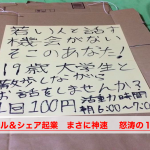 若い人と話す
機会がない
そこのあなた!
19歳大学生と
散歩しながら
お話をしませんか?
1回100円
活動力時間
朝6:00~7:00
ル&シェア起業 まさに神速 怒涛の1